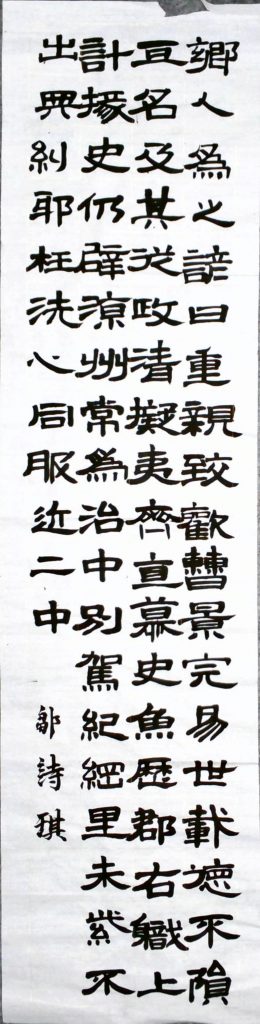 鄉人為之諺曰重親致歡曹景完易世載德不隕
名及其從政清擬夷齊直慕史魚歷郡右職上
計掾史仍辟涼州常為治中別駕紀綱里未紫不
出典糾耶枉洗心同服近二中
鄒詩琪